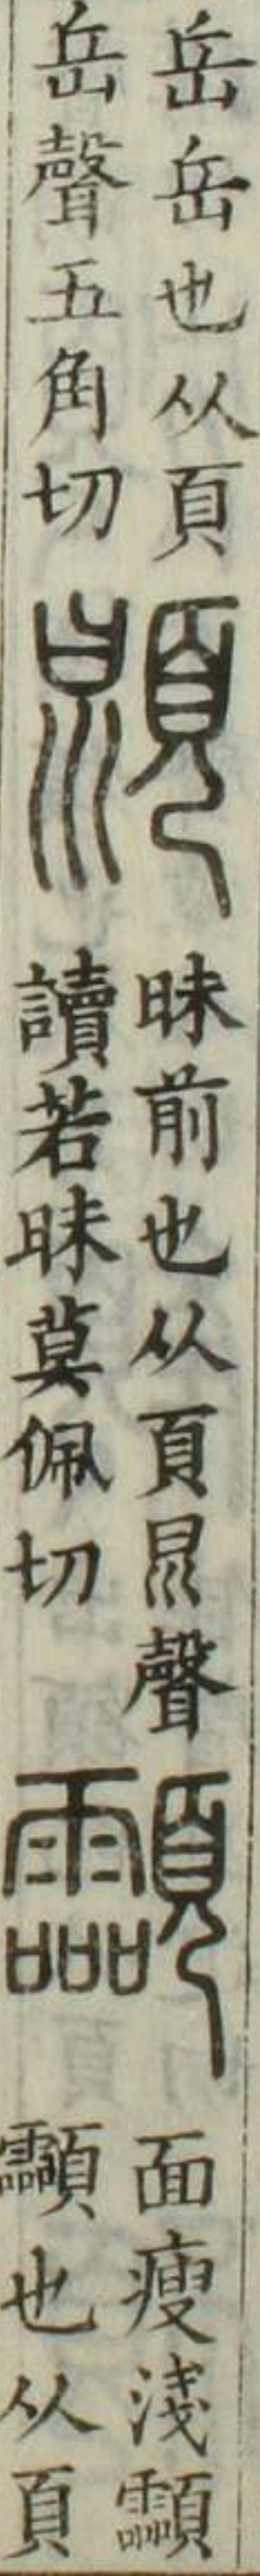 岳岳也从頁
岳聲五角切
昧前也从頁聲
讀若昧莫佩切
𩖊
面瘦淺𩖊
𩖊也从頁